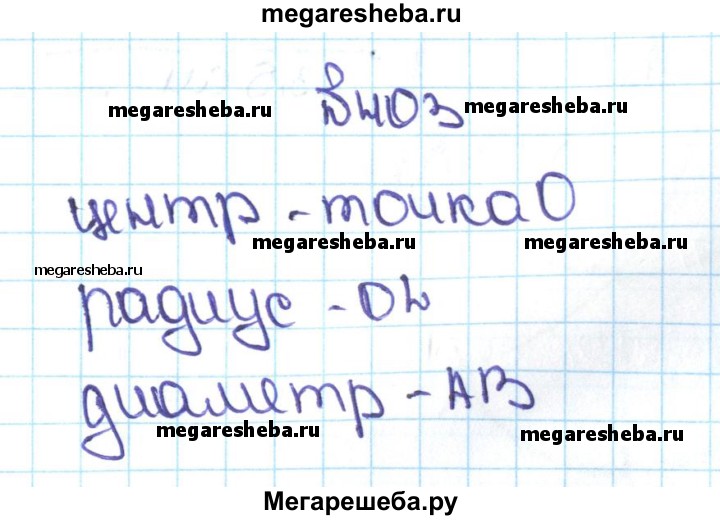 megaresheba.ru
№403
megaresheba.ru megaresheba.ru
центр - точка О
megaresheba.ru megaresheba.ru
megaresheba.ru
радиус - OL
диаметр - АВ
megaresheba.ru megaresheba.ru
Мегарешеба.ру